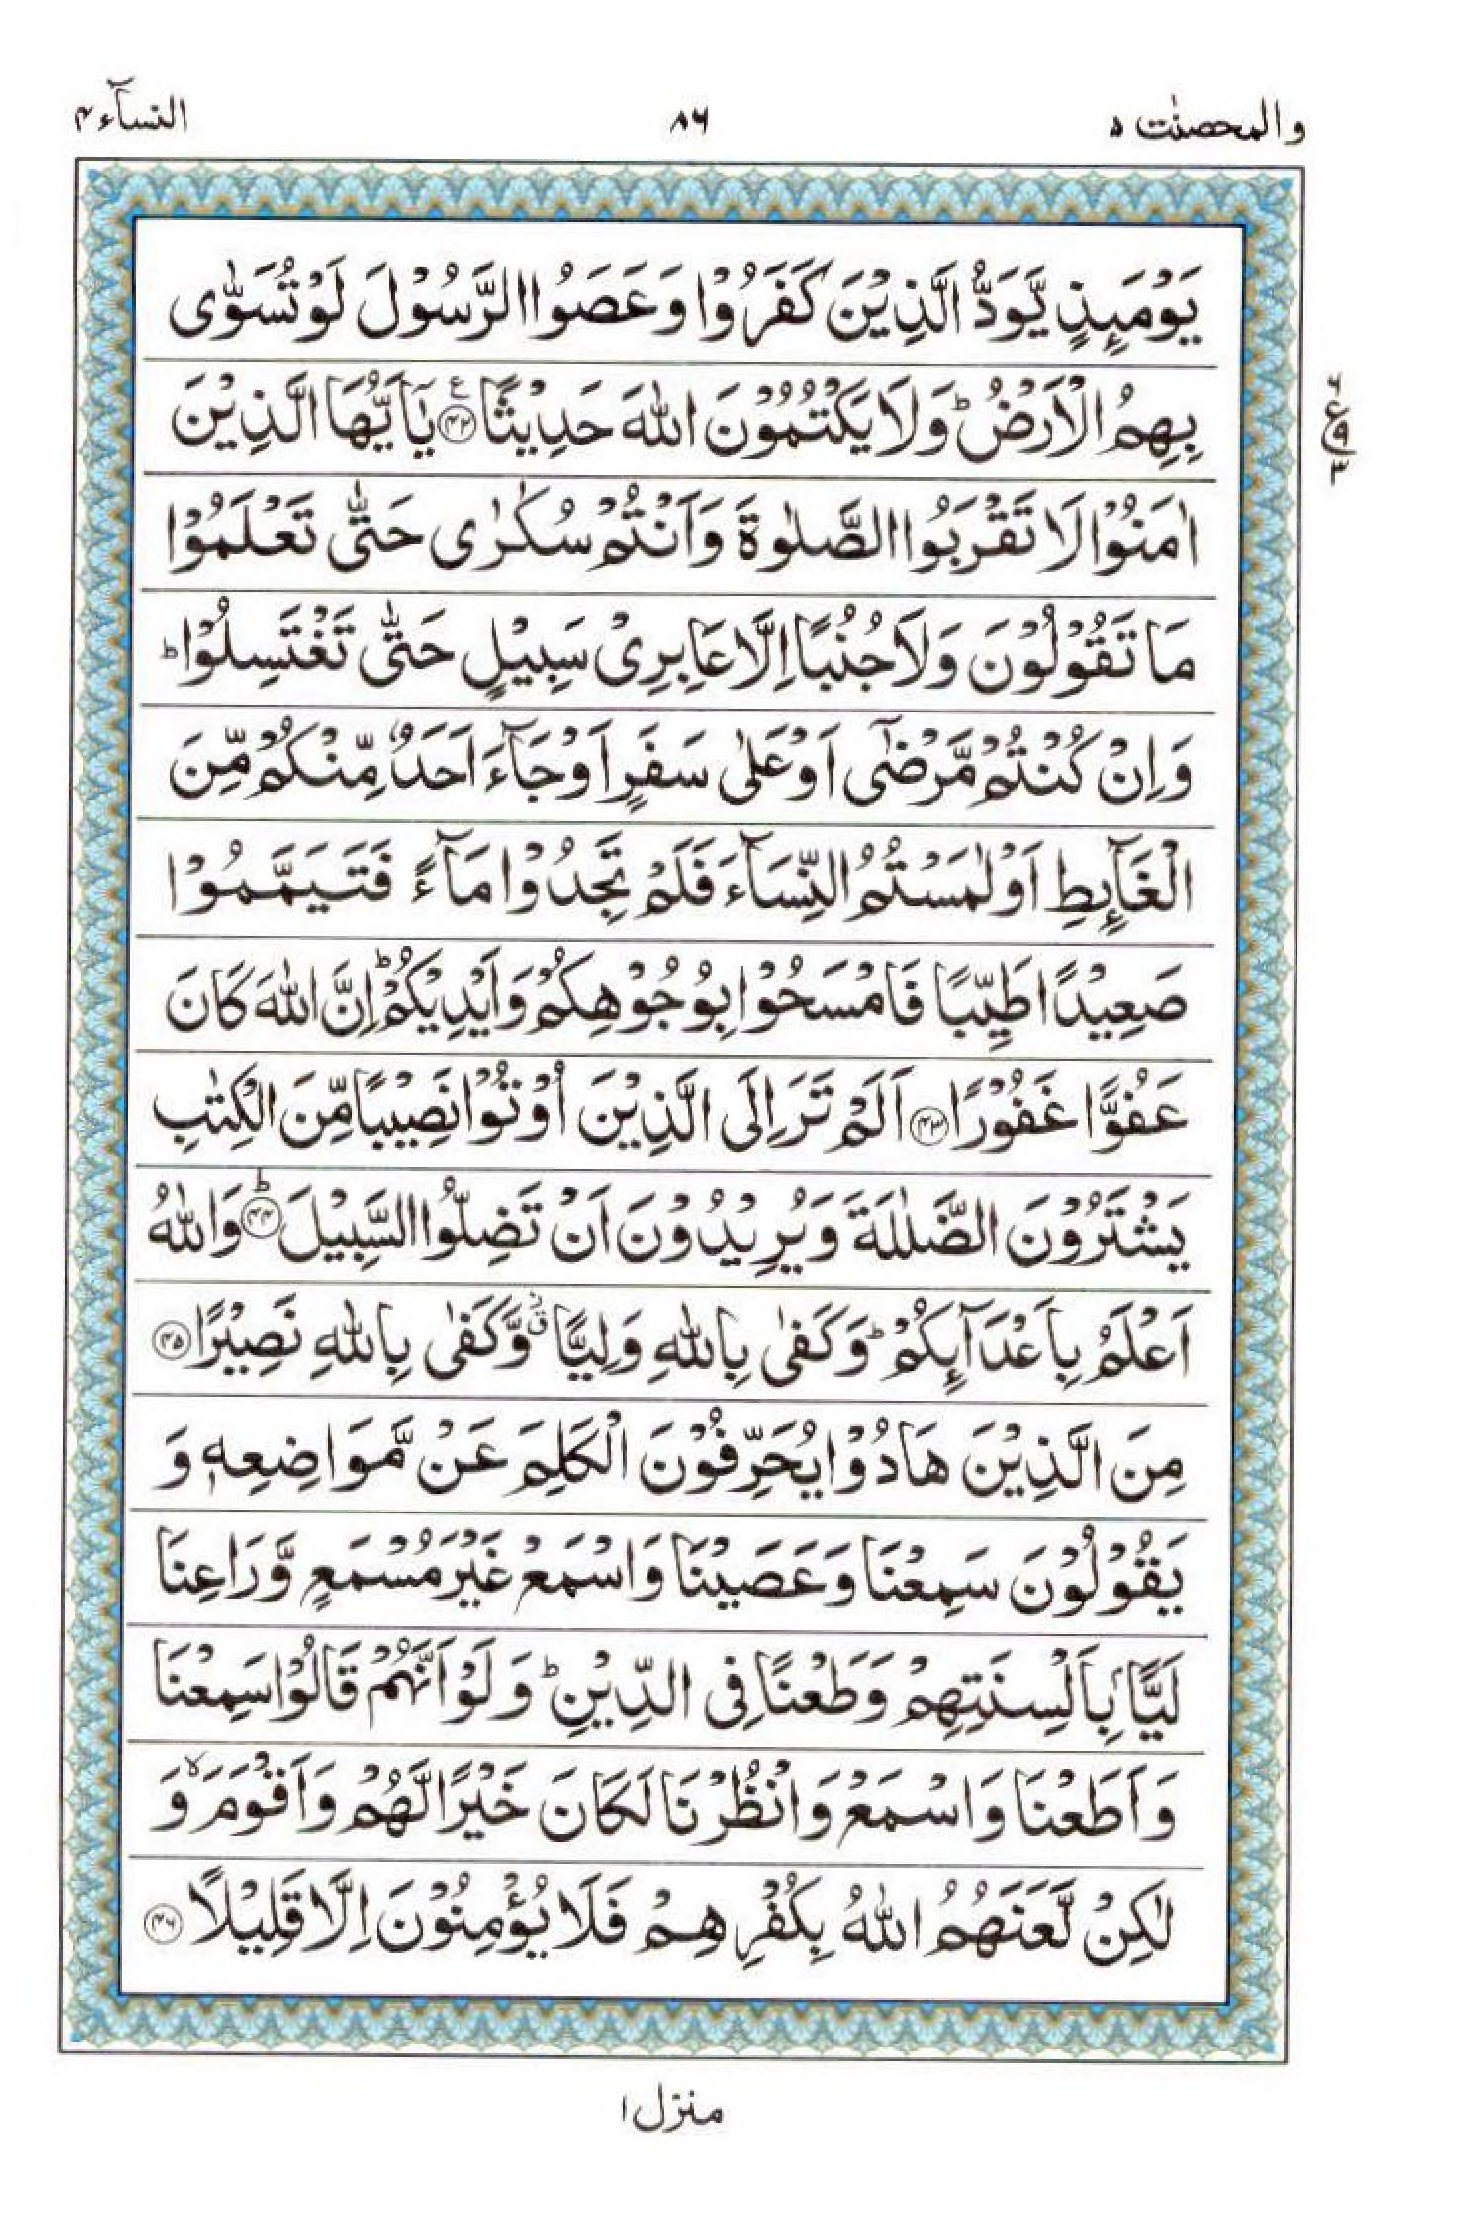 والمحصنٰت ٥
٨٦
النسآء ٤
يَوْمَىِٕذٍ يَّوَدُّ الَّذِيْنَ كَفَرُوْا وَعَصَوُا الرَّسُوْلَ لَوْ تُسَوّٰى
بِهِمُ الْاَرْضُ ؕ وَلَا يَكْتُمُوْنَ اللّٰهَ حَدِيْثًا ۧ ﴿٤٢﴾ يٰۤاَيُّهَا الَّذِيْنَ
اٰمَنُوْا لَا تَقْرَبُوا الصَّلٰوةَ وَاَنْتُمْ سُكٰرٰى حَتّٰى تَعْلَمُوْا
مَا تَقُوْلُوْنَ وَلَا جُنُبًا اِلَّا عَابِرِيْ سَبِيْلٍ حَتّٰى تَغْتَسِلُوْا ؕ
وَاِنْ كُنْتُمْ مَّرْضٰۤى اَوْ عَلٰى سَفَرٍ اَوْ جَآءَ اَحَدٌ مِّنْكُمْ مِّنَ
الْغَآىِٕطِ اَوْ لٰمَسْتُمُ النِّسَآءَ فَلَمْ تَجِدُوْا مَآءً فَتَيَمَّمُوْا
صَعِيْدًا طَيِّبًا فَامْسَحُوْا بِوُجُوْهِكُمْ وَاَيْدِيْكُمْ ؕ اِنَّ اللّٰهَ كَانَ
عَفُوًّا غَفُوْرًا ﴿٤٣﴾ اَلَمْ تَرَ اِلَى الَّذِيْنَ اُوْتُوْا نَصِيْبًا مِّنَ الْكِتٰبِ
يَشْتَرُوْنَ الضَّلٰلَةَ وَيُرِيْدُوْنَ اَنْ تَضِلُّوا السَّبِيْلَ ؕ ﴿٤٤﴾ وَاللّٰهُ
اَعْلَمُ بِاَعْدَآىِٕكُمْ ؕ وَكَفٰى بِاللّٰهِ وَلِيًّا ۗ وَّكَفٰى بِاللّٰهِ نَصِيْرًا ﴿٤٥﴾
مِنَ الَّذِيْنَ هَادُوْا يُحَرِّفُوْنَ الْكَلِمَ عَنْ مَّوَاضِعِهٖ وَ
يَقُوْلُوْنَ سَمِعْنَا وَعَصَيْنَا وَاسْمَعْ غَيْرَ مُسْمَعٍ وَّرَاعِنَا
لَيًّۢا بِاَلْسِنَتِهِمْ وَطَعْنًا فِي الدِّيْنِ ؕ وَلَوْ اَنَّهُمْ قَالُوْا سَمِعْنَا
وَاَطَعْنَا وَاسْمَعْ وَانْظُرْنَا لَكَانَ خَيْرًا لَّهُمْ وَاَقْوَمَ ۙ وَ
لٰكِنْ لَّعَنَهُمُ اللّٰهُ بِكُفْرِهِمْ فَلَا يُؤْمِنُوْنَ اِلَّا قَلِيْلًا ﴿٤٦﴾
٦
ع
٩
٣
منزل ١